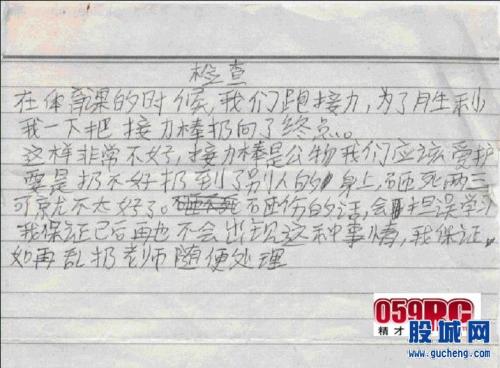 检查
在体育课的时候,我们跑接力,为了胜利
我一下把接力棒扔向了终点...
这样非常不好,接力棒是公物我们应该爱护
要是扔不好扔到了别人的身上,砸死两三
可就不太好了。砸伤的话,会耽误学习
我保证已后再也不会出现这种事情,我保证..
如再乱扔老师随便处理
059RC
精才
股城网
www.gucheng.com